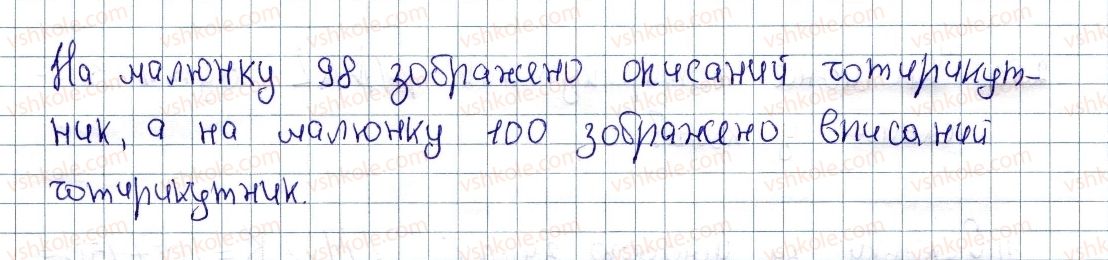 На малюнку 98 зображено описаний чотирикут-
ник, а на малюнку 100 зображено вписаний
чотирикутник.